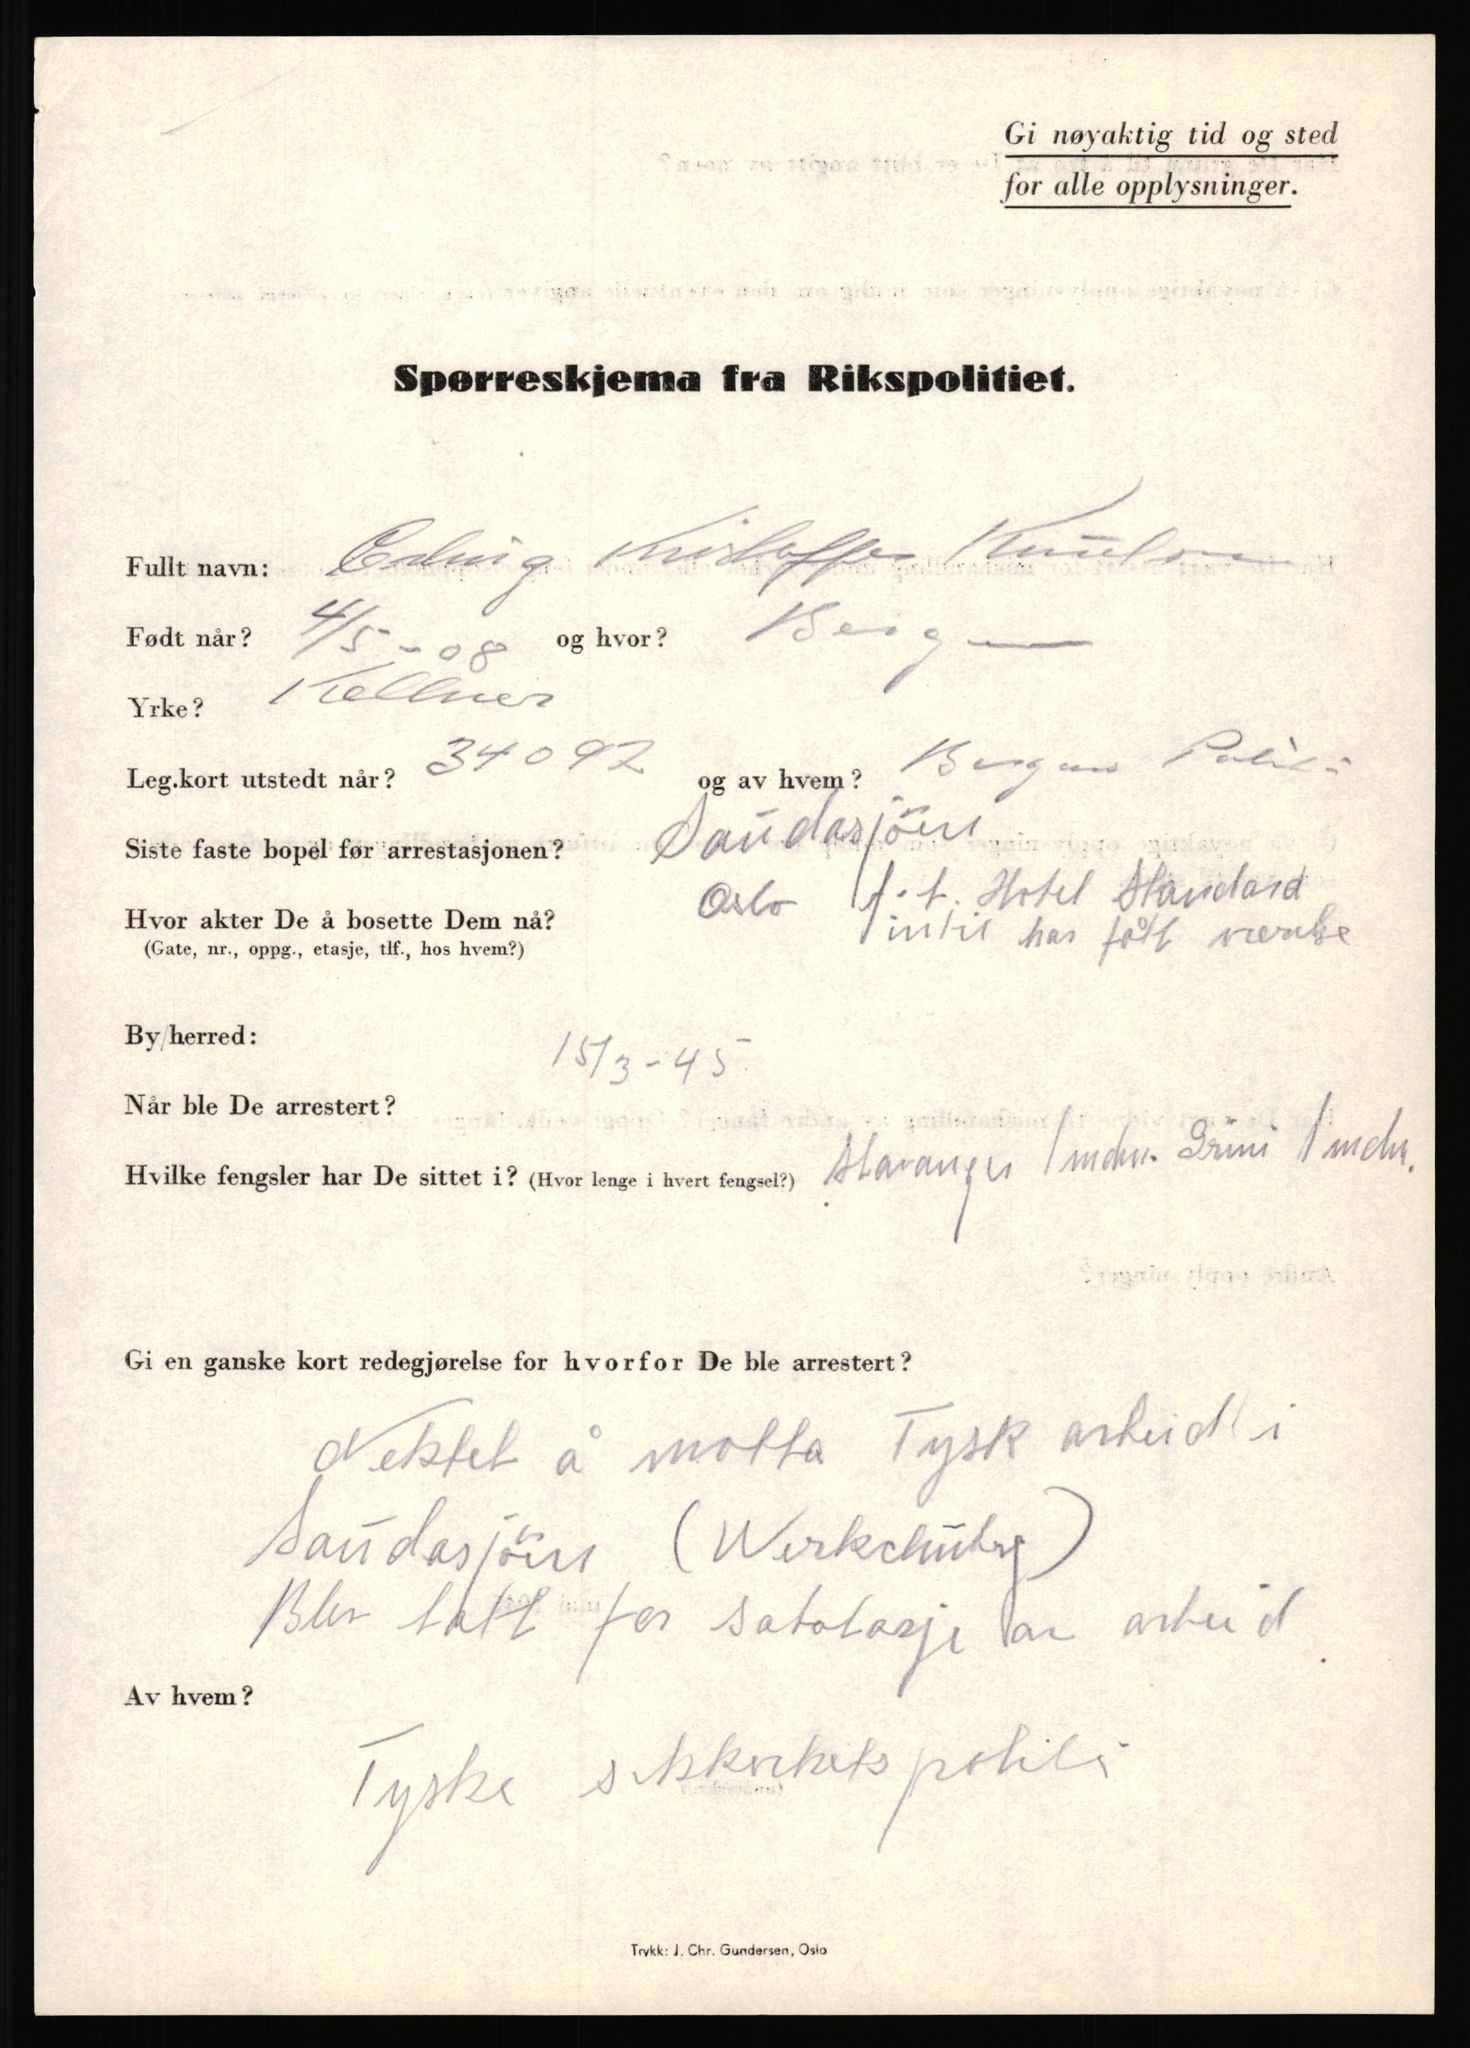 Gi nøyaktig tid og sted
for alle opplysninger.
Spørreskjema fra Rikspolitiet.
Fullt navn: Erling Kristoffer Knutsen
Født når? 4/5-08 og hvor? Bergen
Yrke? Kellner
Leg.kort utstedt når? 34092 og av hvem? Bergens Politi
Siste faste bopel før arrestasjonen? Saudasjöen
Hvor akter De å bosette Dem nå? Oslo f.t. Hotel Standard
(Gate, nr., oppg., etasje, tlf., hos hvem?) intil har fått
By/herred:
15/3-45
Når ble De arrestert?
Hvilke fengsler har De sittet i? (Hvor lenge i hvert fengsel?) Stavanger 1 mdn. Grini 1 mdn.
Gi en ganske kort redegjørelse for hvorfor De ble arrestert?
Nektet å motta Tysk arbeid i
Saudasjöen
Blev tatt for sabotasje av arbeid.
Av hvem?
Tyske sikkerhetspoliti
Trykk: J. Chr. Gundersen, Oslo